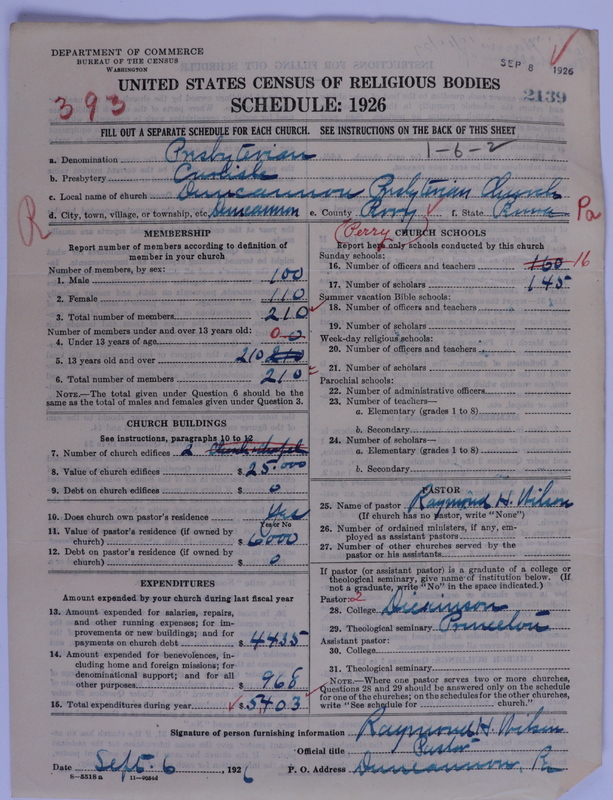 DEPARTMENT OF COMMERCE
BUREAU OF THE CENSUS
WASHINGTON
SEP 8 1926
UNITED STATES CENSUS OF RELIGIOUS BODIES
SCHEDULE: 1926
393
2139
FILL OUT A SEPARATE SCHEDULE FOR EACH CHURCH. SEE INSTRUCTIONS ON THE BACK OF THIS SHEET
1-6-2
a. Denomination Presbyterian
b. Presbytery Carlisle
c. Local name of church Duncannon Presbyterian Church
d. City, town, village, or township, etc. Duncannon e. County Perry f. State Penna Pa
R
(Perry)
MEMBERSHIP
Report number of members according to definition of
member in your church
Number of members, by sex:
1. Male 100
2. Female 110
3. Total number of members 210
Number of members under and over 13 years old:
4. Under 13 years of age 0
5. 13 years old and over 210 210
6. Total number of members 210
NOTE.—The total given under Question 6 should be
same as the total of males and females given under Question 3.
CHURCH BUILDINGS
See instructions, paragraphs 10 to 12
7. Number of church edifices 2 Church & chapel
8. Value of church edifices $25.000
9. Debt on church edifices $ 0
10. Does church own pastor's residence Yes
Yes or No
11. Value of pastor's residence (if owned by
church) $6000
12. Debt on pastor's residence (if owned by
church) $ 0
EXPENDITURES
Amount expended by your church during last fiscal year
13. Amount expended for salaries, repairs,
and other running expenses; for im-
provements or new buildings; and for
payments on church debt $4435
14. Amount expended for benevolences, in-
cluding home and foreign missions; for
denominational support; and for all
other purposes $968
15. Total expenditures during year $5403
CHURCH SCHOOLS
Report here only schools conducted by this church
Sunday schools:
16. Number of officers and teachers 160 16
17. Number of scholars 145
Summer vacation Bible schools:
18. Number of officers and teachers
19. Number of scholars
Week-day religious schools:
20. Number of officers and teachers
21. Number of scholars
Parochial schools:
22. Number of administrative officers
23. Number of teachers—
a. Elementary (grades 1 to 8)
b. Secondary
24. Number of scholars—
a. Elementary (grades 1 to 8)
b. Secondary
PASTOR
25. Name of pastor Raymond H. Wilson
(If church has no pastor, write "None")
26. Number of ordained ministers, if any, em-
ployed as assistant pastors
27. Number of other churches served by the
pastor or his assistants
If pastor (or assistant pastor) is a graduate of a college or
theological seminary, give name of institution below. (If
not a graduate, write "No" in the space indicated.)
Pastor: 2
28. College Dickinson
29. Theological seminary Princeton
Assistant pastor:
30. College
31. Theological seminary
NOTE.—Where one pastor serves two or more churches,
Questions 28 and 29 should be answered only on the schedule
for one of the churches; on the schedules for the other churches,
write "See schedule for church."
Signature of person furnishing information Raymond H. Wilson
Official title Pastor
Date Sept. 6, 1926 P. O. Address Duncannon, Pa
8—5518 a